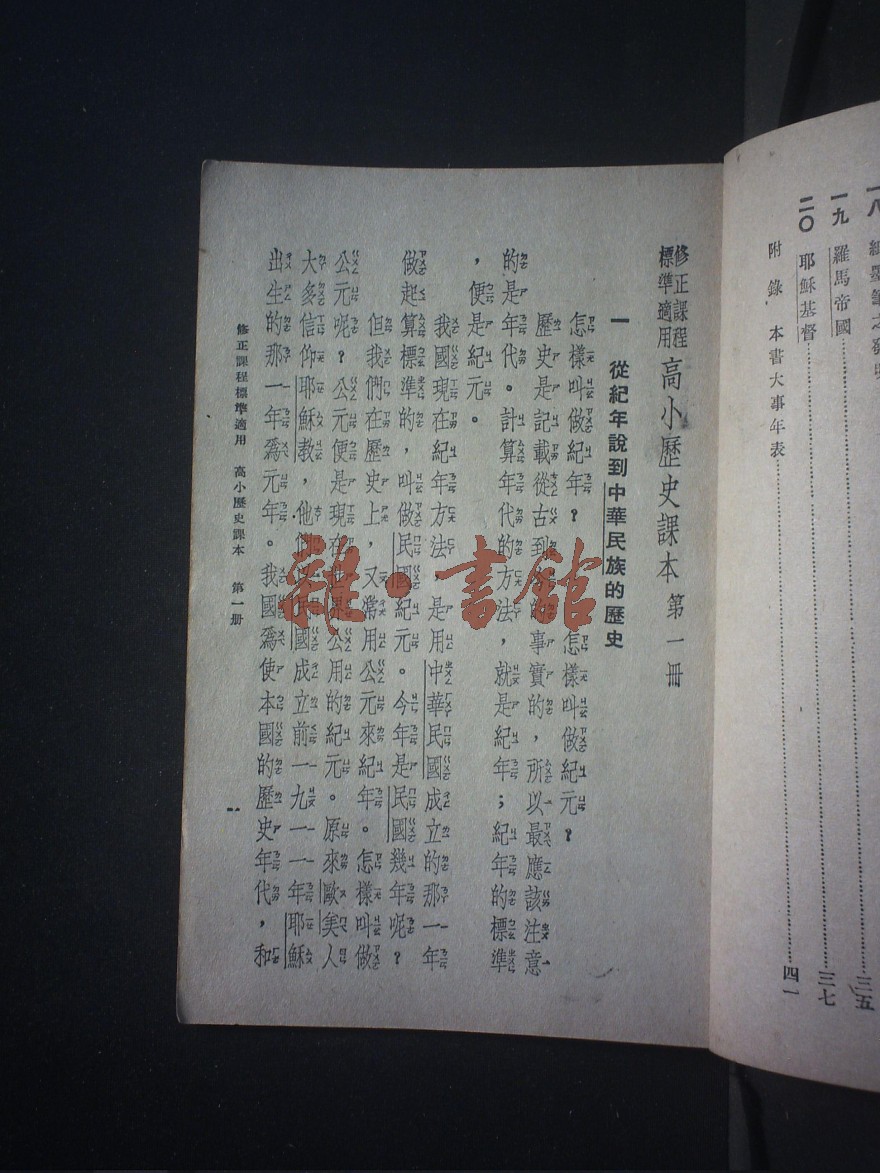 一八 紙墨筆之發明
一九 羅馬帝國……三五
二〇 耶穌基督……三七
附錄 本書大事年表……四一
修正課程標準適用 高小歷史課本 第一冊
一 從紀年說到中華民族的歷史
怎樣叫做紀年？ 怎樣叫做紀元？
歷史是記載從古到今的事實的，所以最應該注意
的是年代。計算年代的方法，就是紀年；紀年的標準
，便是紀元。
我國現在紀年方法，是用中華民國成立的那一年
做起算標準的，叫做民國紀元。今年是民國幾年呢？
但我們在歷史上，又常用公元來紀年。怎樣叫做
公元呢？公元便是現在世界公用的紀元。原來歐美人
大多信仰耶穌教，他們以民國成立前一九一一年耶穌
出生的那一年爲元年。我國爲使本國的歷史年代，和
修正課程標準適用 高小歷史課本 第一冊
一
雜·書館